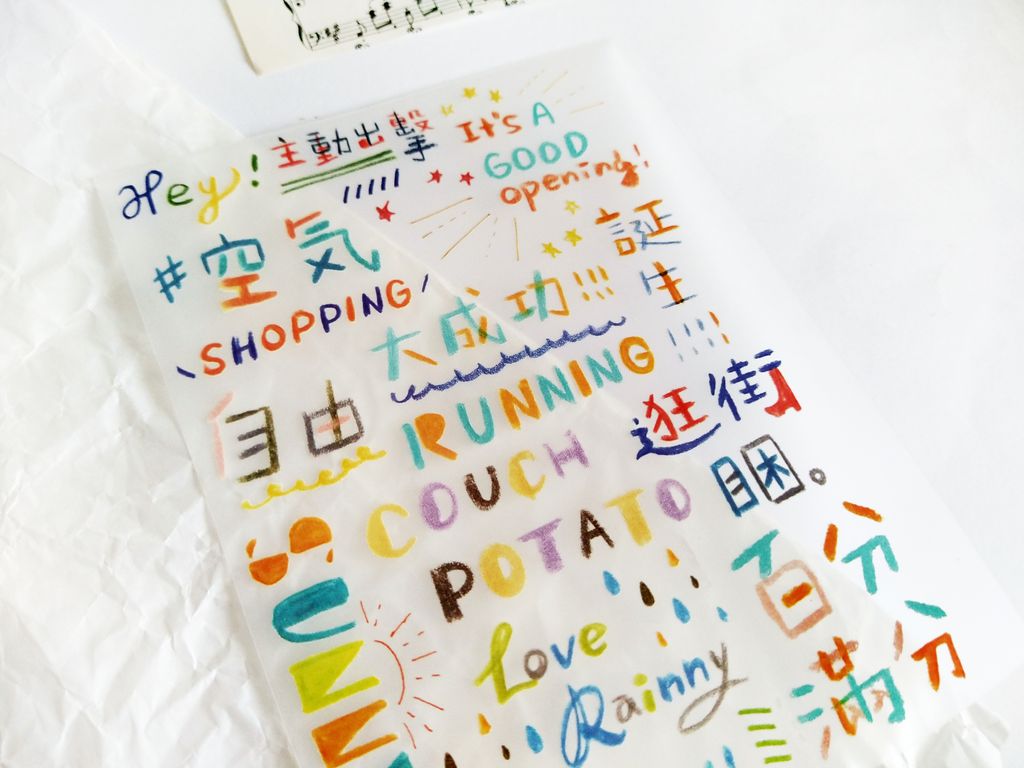 Hey! 主動出擊
It's A
GOOD
opening!
#空気
誕
生
SHOPPING
大成功!!!
!!!!
自由
RUNNING
逛街
COUCH
睏。
POTATO
SUNN
百分
滿分
Love
Rainny